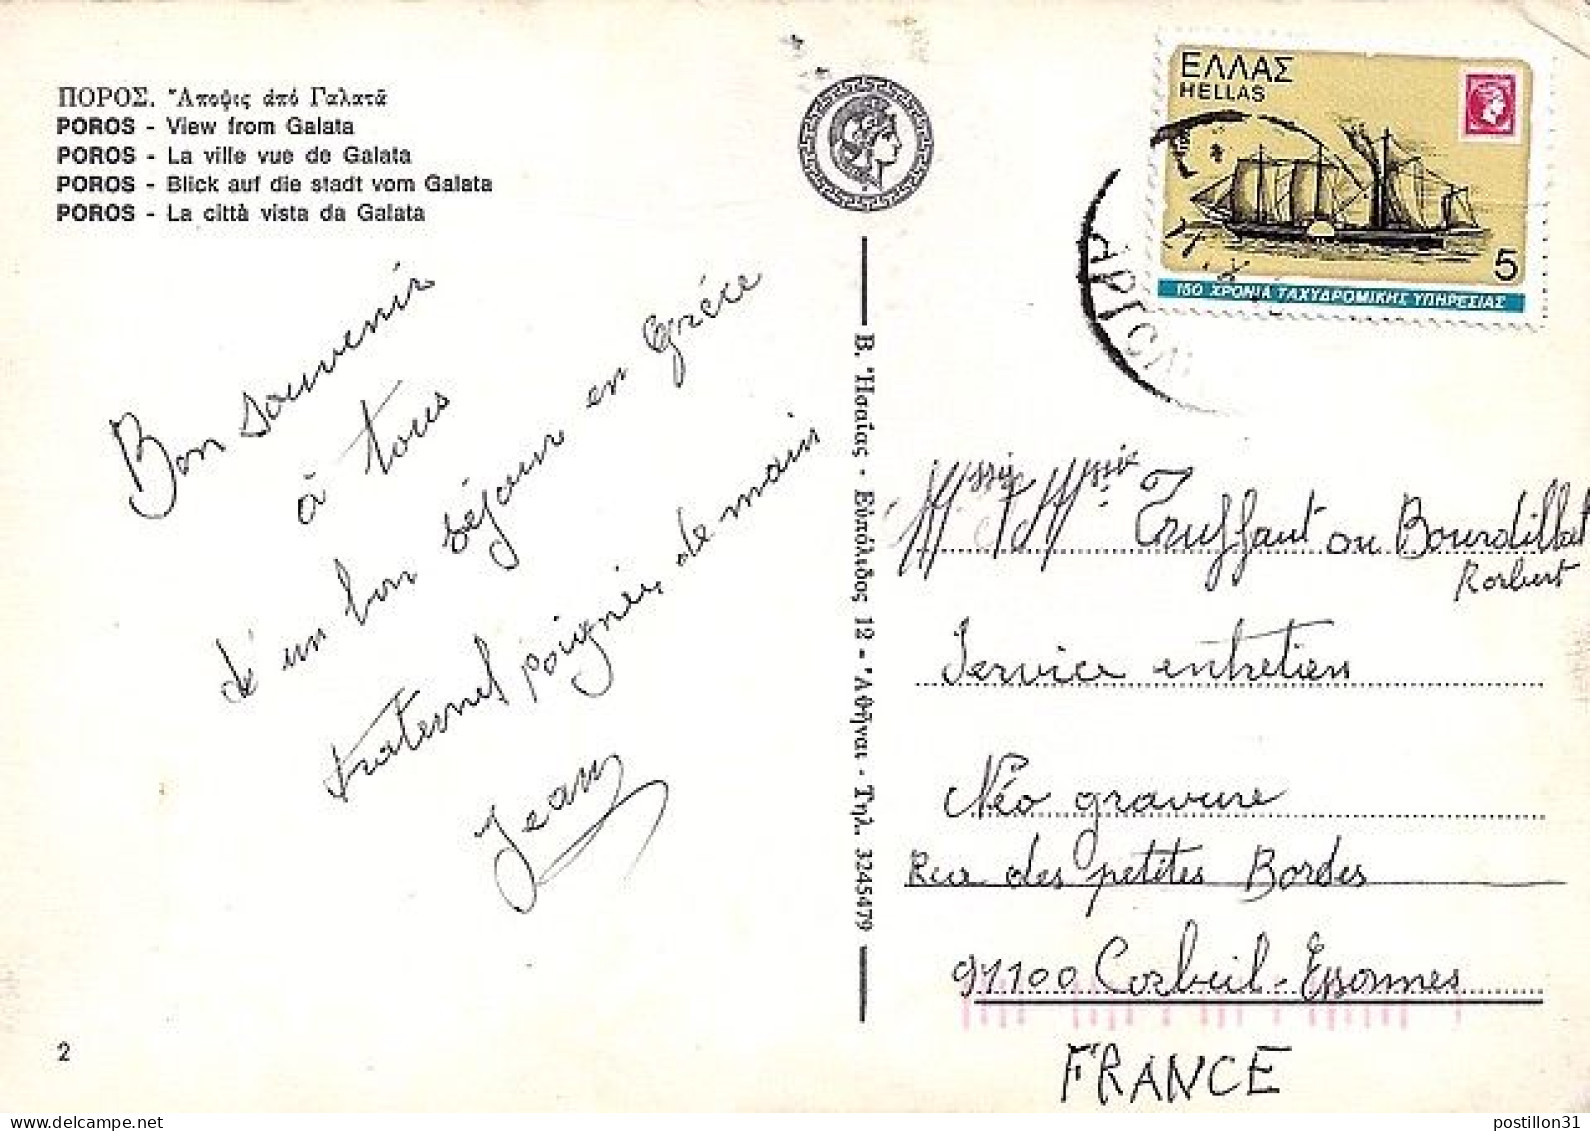 ΠΟΡΟΣ. Ἄποψις ἀπό Γαλατᾶ
POROS - View from Galata
POROS - La ville vue de Galata
POROS - Blick auf die stadt vom Galata
POROS - La città vista da Galata
Bon souvenir
à tous
d'un bon séjour en Grèce
fraternel poignée de main
Jean
2
Β. Ἡσαΐας - Εὐπόλιδος 12 - Ἀθῆναι - Τηλ. 3245479
ΕΛΛΑΣ
HELLAS
5
150 ΧΡΟΝΙΑ ΤΑΧΥΔΡΟΜΙΚΗΣ ΥΠΗΡΕΣΙΑΣ
Truffaut ou Bourdillat
Service entretien
Néo gravure
Rue des petites Bordes
91100 Corbeil-Essonnes
FRANCE
postillon31